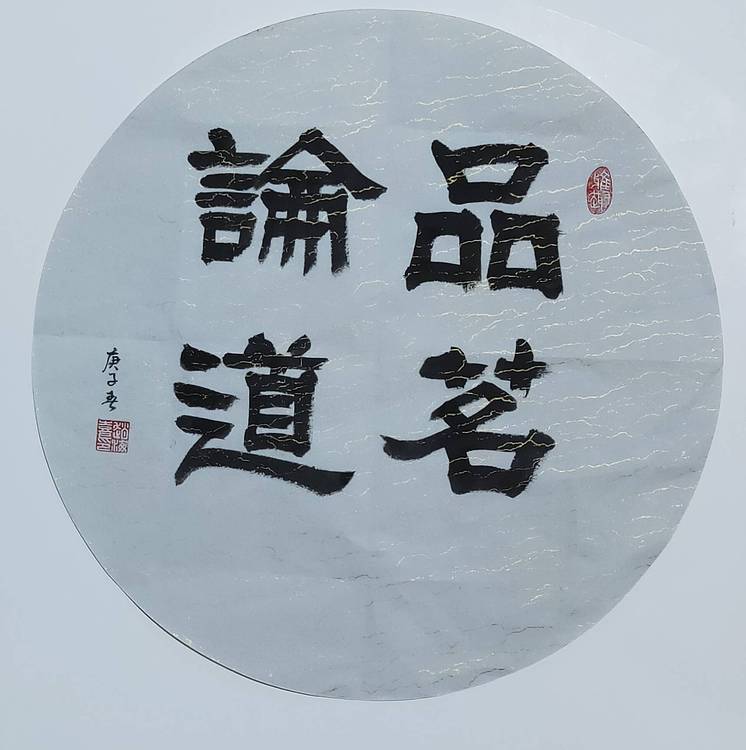 品茗
論道
庚子春